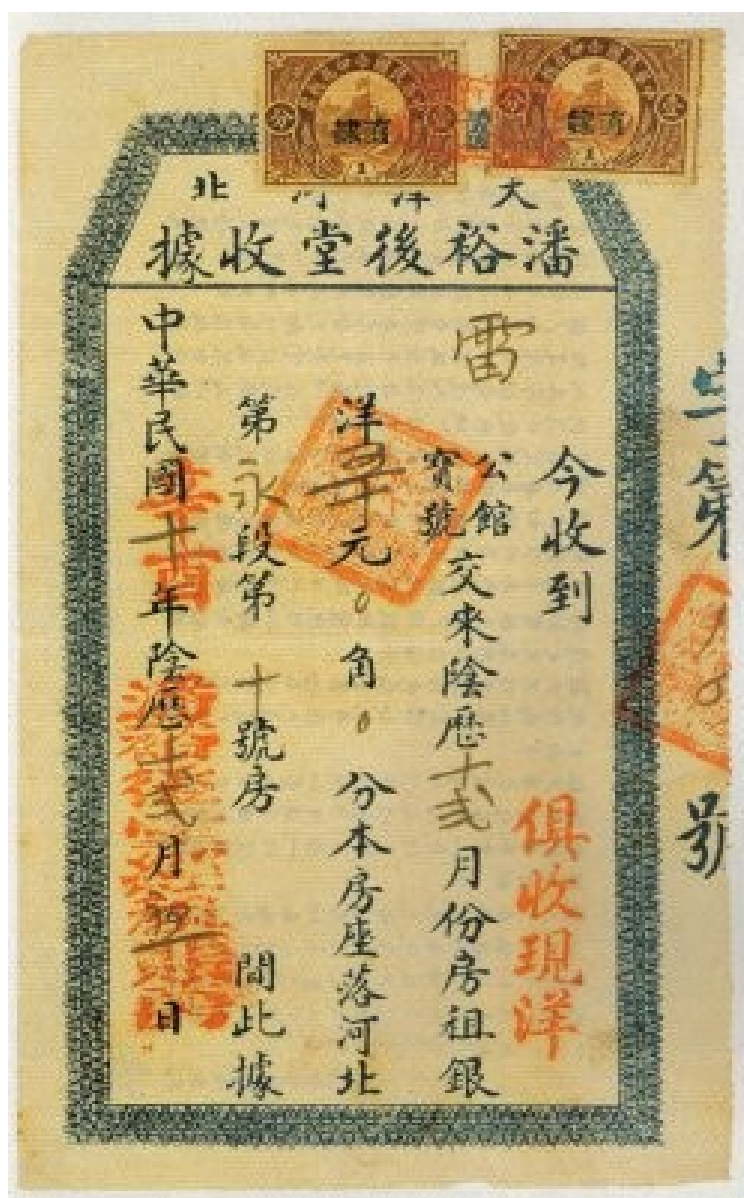 直隸
直隸
天津河北
潘裕後堂收據
字第
號
今收到
俱收現洋
雷
公館
寶號
交來陰歷十弍月份房租銀
洋 元0角0分本房座落河北
第永段第十號房 間此據
中華民國十年陰歷十弍月 日
辛酉